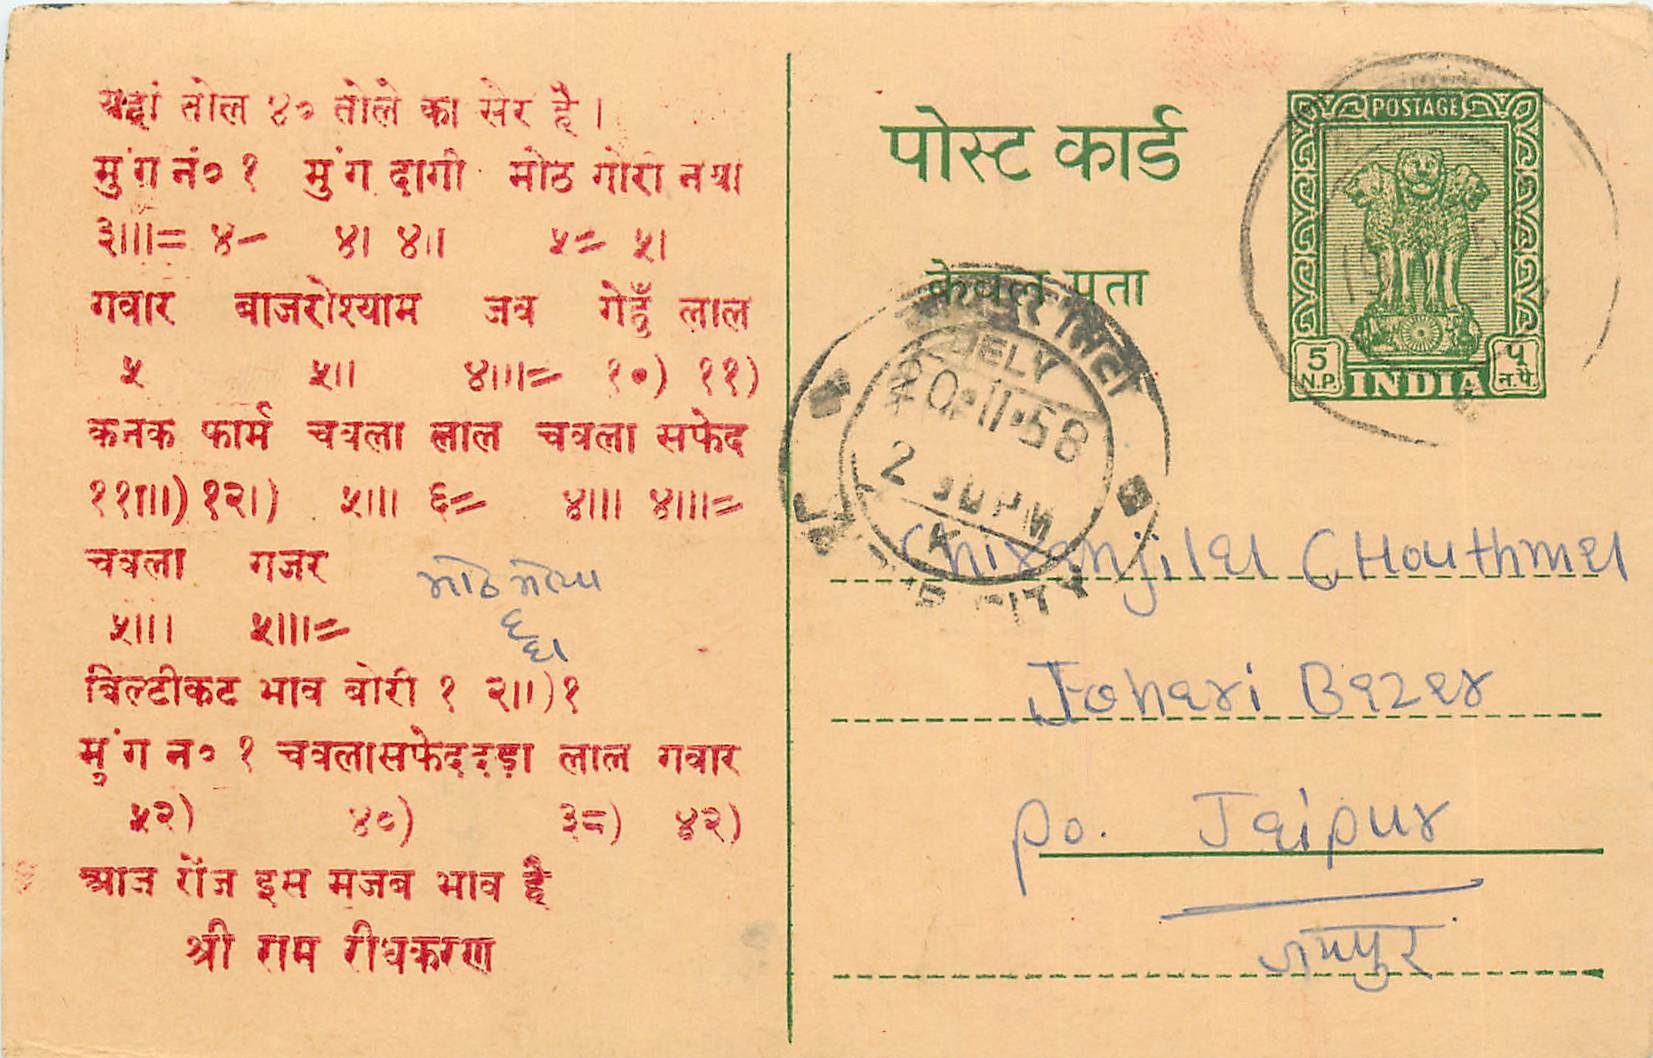 यहां तोल ४० तोले का सेर है।
मुंग नं० १ मुंग दागी मोठ गोरा नया
३॥।= ४- ४। ४॥ ५= ५।
गवार बाजरोश्याम जव गेहुँ लाल
५ ५॥ ४॥।= १०) ११)
कनक फार्म चवला लाल चवला सफेद
११॥।) १२।) ५॥। ६= ४॥। ४॥।=
चवला गजर
५॥। ५॥।=
मोठ
६
६।
बिल्टीकट भाव बोरी १ २॥)१
मुंग न० १ चवलासफेददड़ा लाल गवार
५२) ४०) ३८) ४२)
आज रोज इस मजब भाव है
श्री राम रीधकरण
पोस्ट कार्ड
केवल पता
POSTAGE
5 N.P.
INDIA
५ न.पै.
जयपुर सिटी
DELY
20·11·58
2 30 PM
CITY
Chiranjilal CHouthmal
Johari Bazar
Po. Jaipur
जयपुर